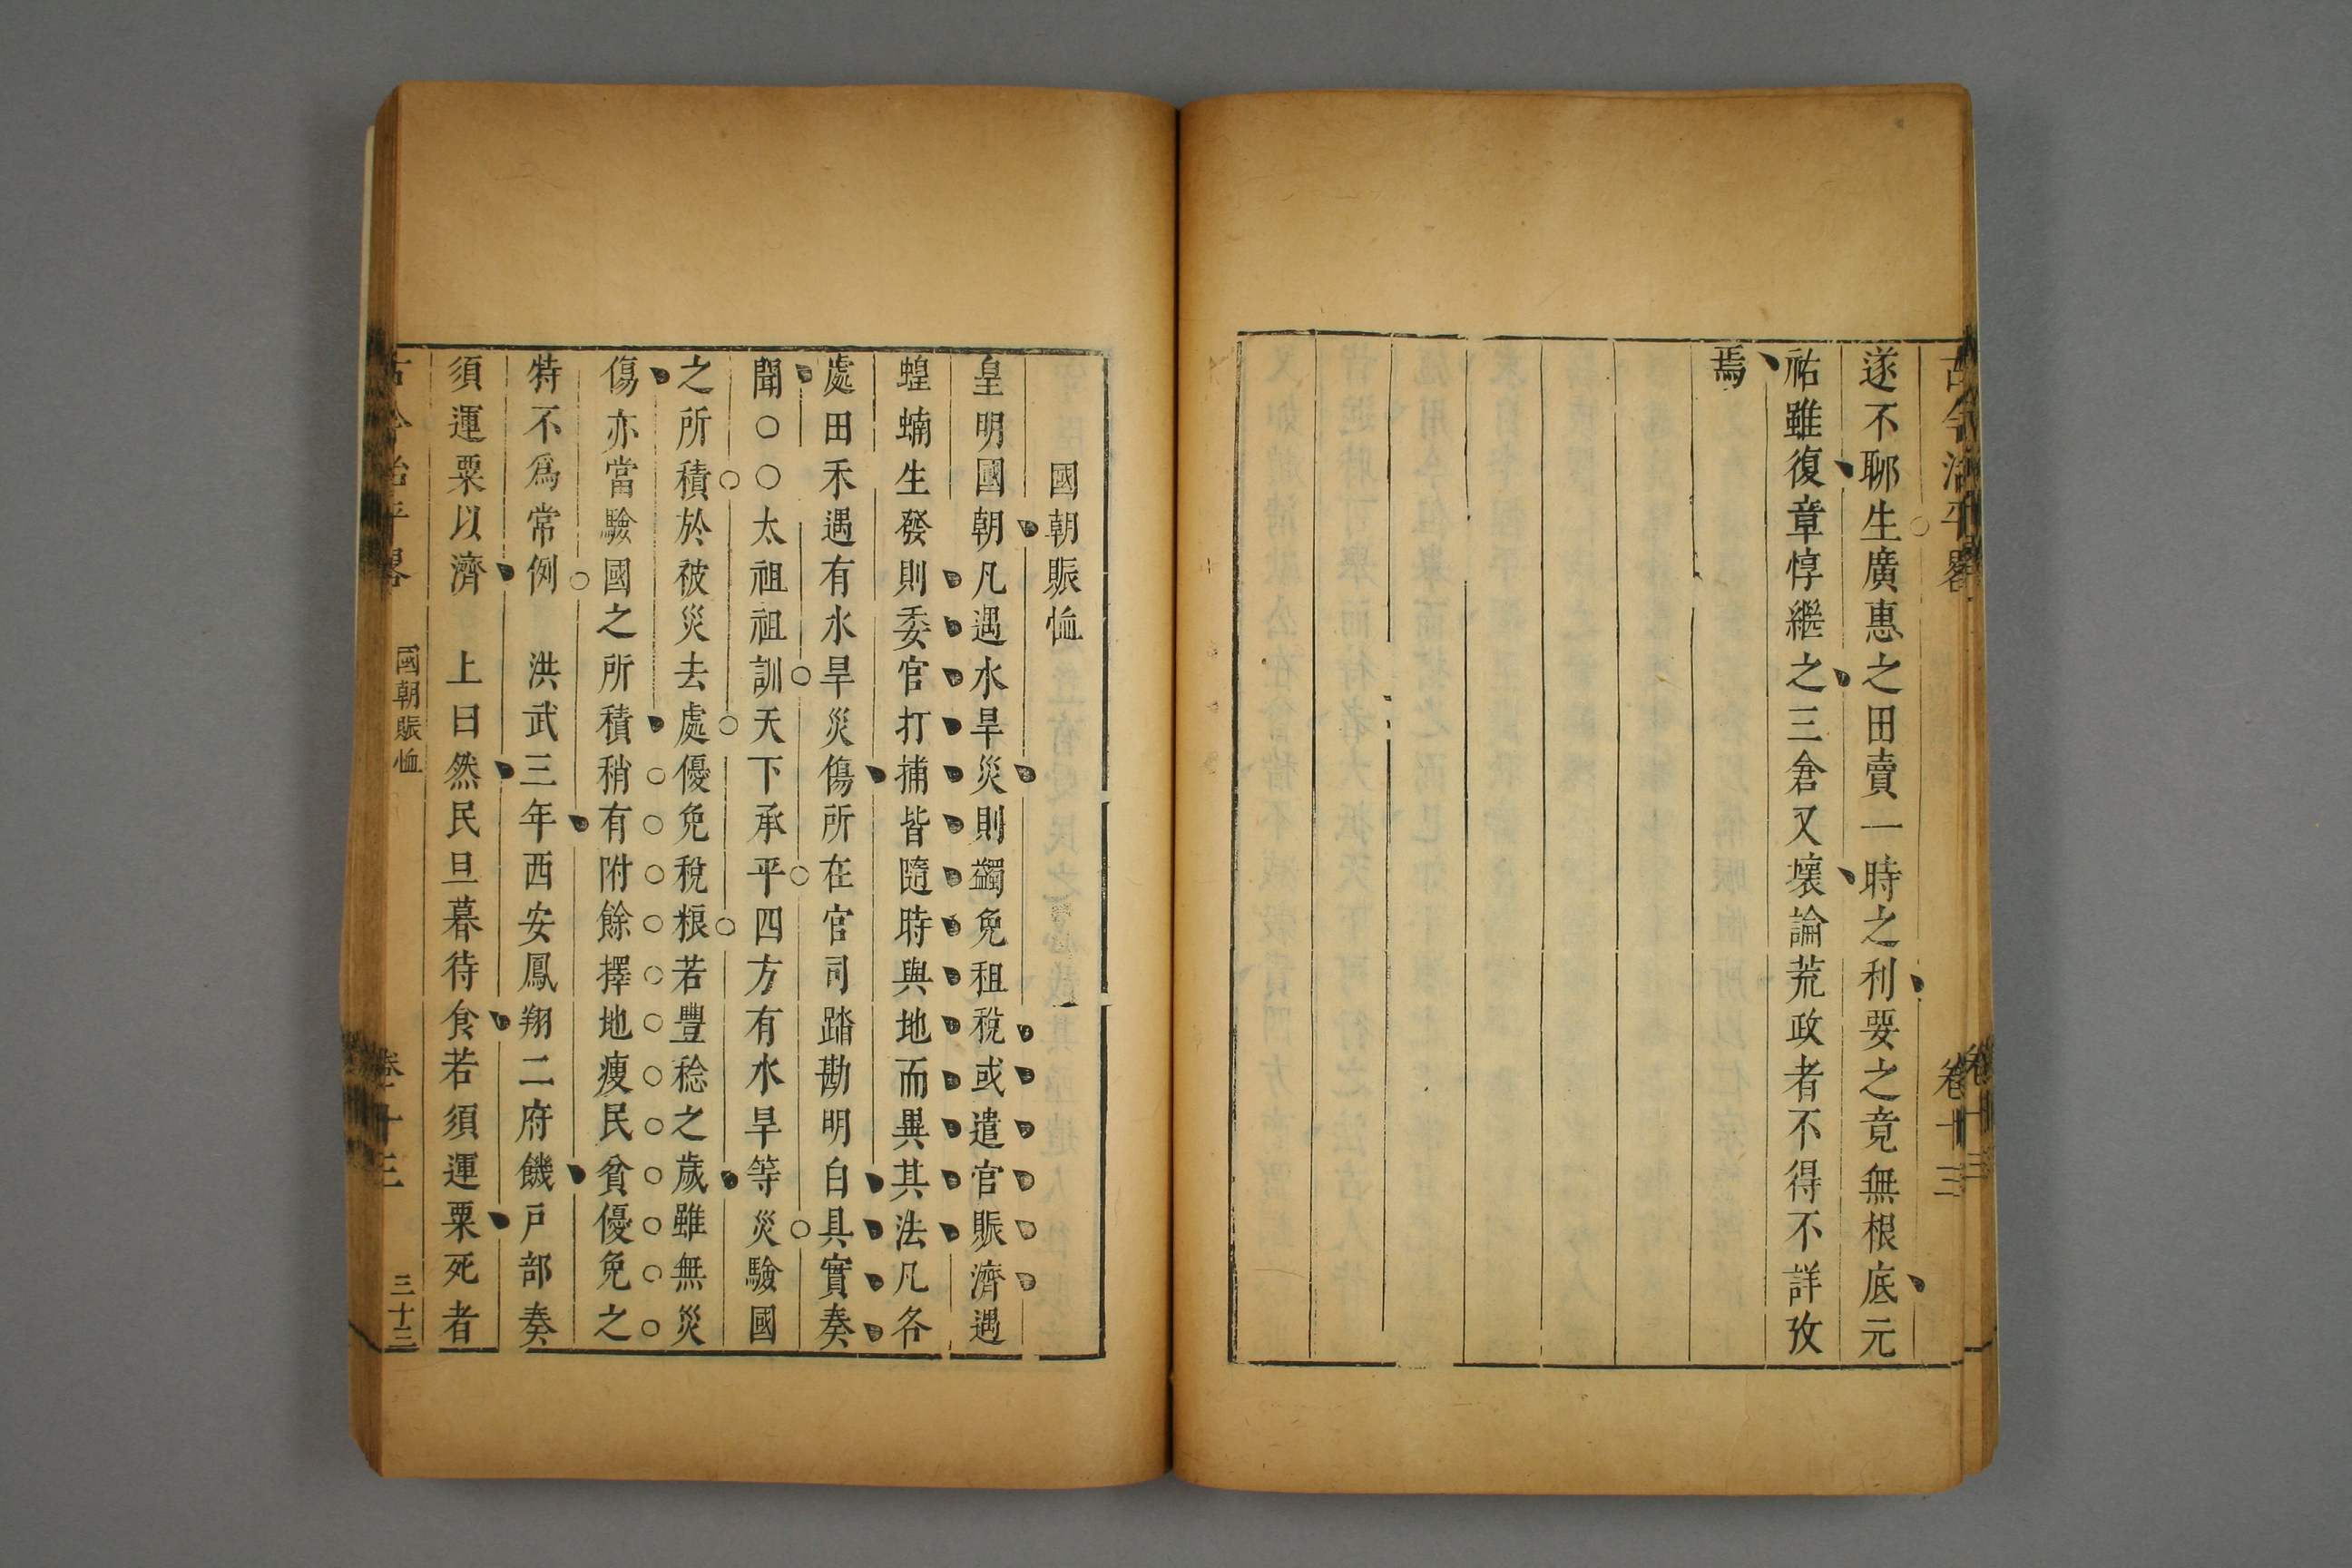 古今治平畧 卷十三
遂不聊生廣惠之田賣一時之利要之竟無根底元
祐雖復章惇繼之三倉又壞論荒政者不得不詳攷
焉
國朝賑恤
皇明國朝凡遇水旱災則蠲免租稅或遣官賑濟遇
蝗蝻生發則委官打捕皆隨時與地而異其法凡各
處田禾遇有水旱災傷所在官司踏勘明白具實奏
聞○○太祖祖訓天下承平四方有水旱等災驗國
之所積於被災去處優免稅粮若豐稔之歲雖無災
傷亦當驗國之所積稍有附餘擇地瘦民貧優免之
特不爲常例　洪武三年西安鳳翔二府饑戶部奏
須運粟以濟　上曰然民旦暮待食若須運粟死者
古今治平畧 國朝賑恤 卷十三 三十三